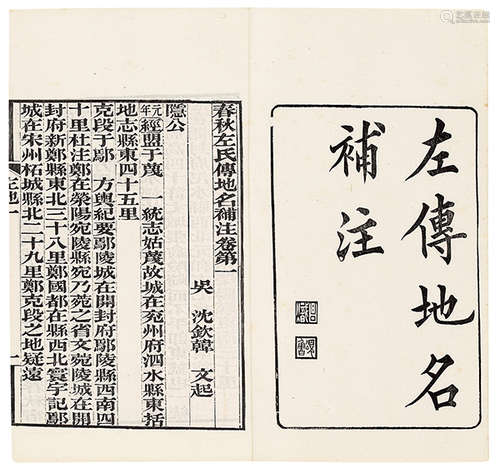 左傳地名
補注
春秋左氏傳地名補注卷第一
吳 沈欽韓 文起
隱公
元年經盟于蔑 一統志姑蔑故城在兗州府泗水縣東括
地志縣東四十五里
克段于鄢 方輿紀要鄢陵城在開封府鄢陵縣西南四
十里杜注鄭在滎陽宛陵縣宛乃苑之省文宛陵城在開
封府新鄭縣東北三十八里鄭國都在縣西北寰宇記鄢
城在宋州柘城縣北二十九里鄭克段之地疑遠